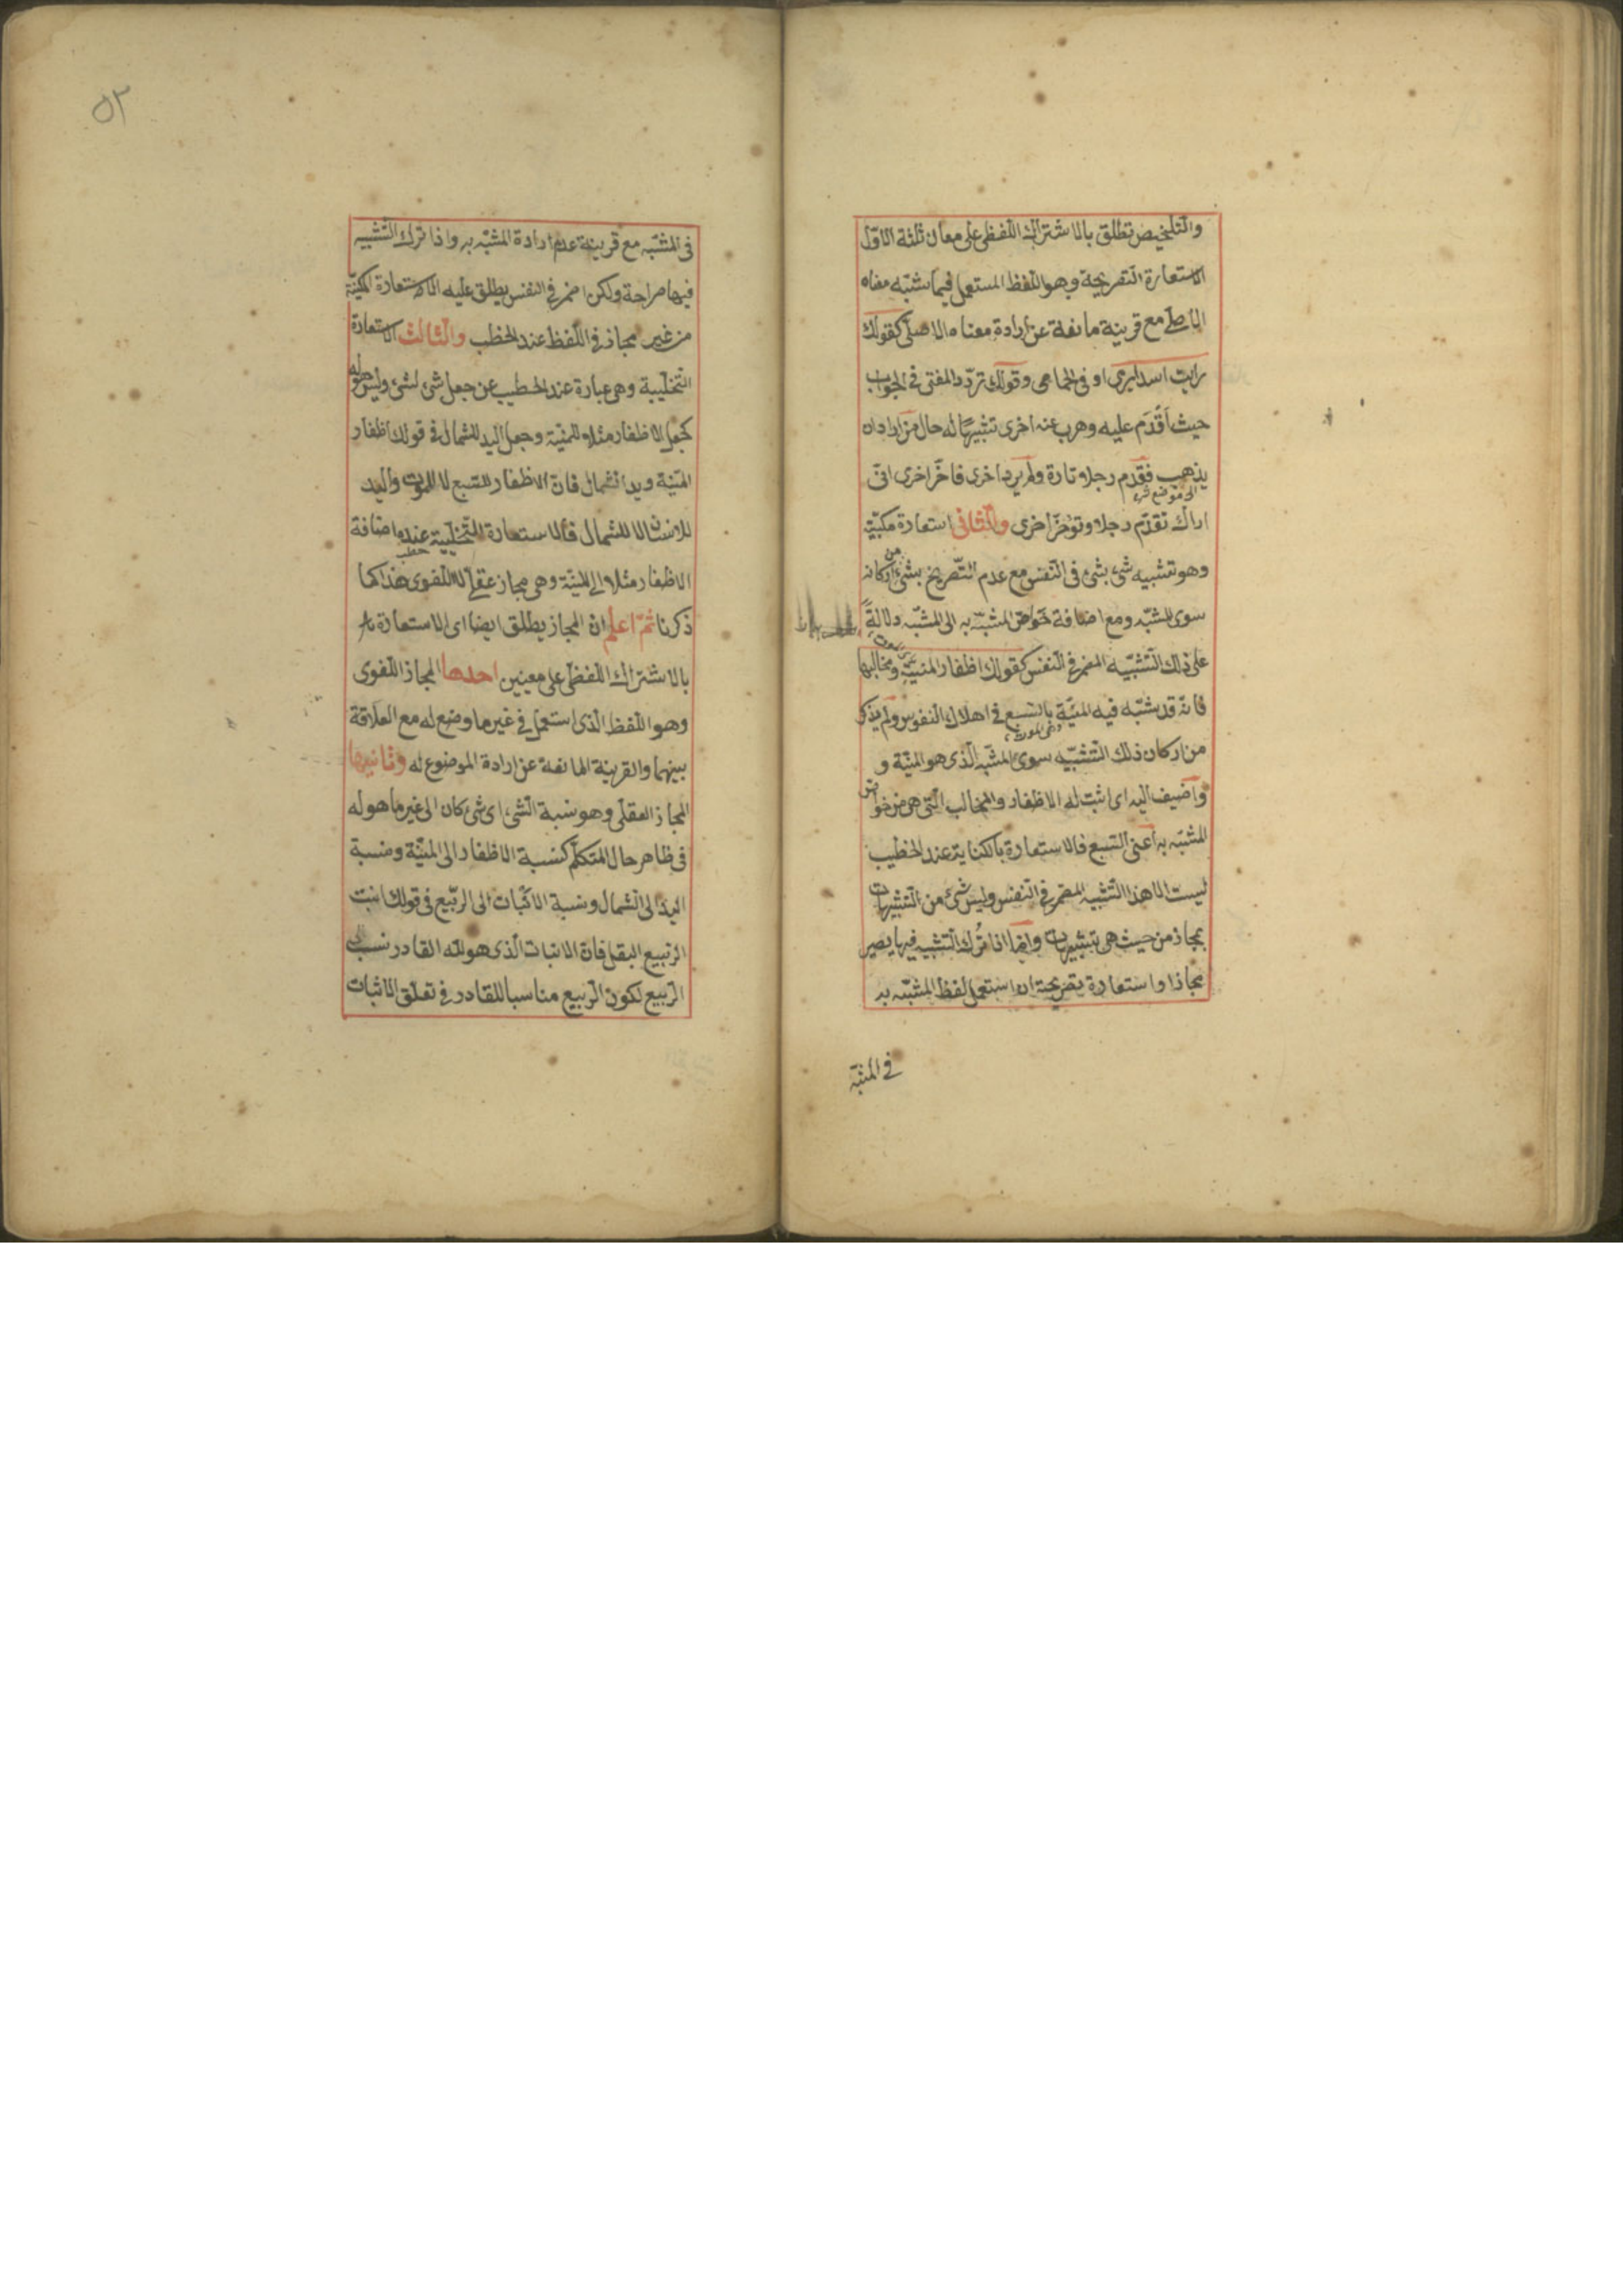 والتلخيص تطلق بالاشتراك اللفظى على معان ثلثة الاوّل
الاستعارة التصريحية وهو اللفظ المستعمل فيما شبّه معناه
الاصلى مع قرينة مانعة عن ارادة معناه الاصلى كقولك
رايت اسدا يرمى او فى الحمام وقولك تردّد المفتى فى الجواب
حيث اقدم عليه وهرب عنه اخرى تشبيها له حال من اراد ان
يذهب فقدم رجلا وتارة ولم يرد اخرى فاخّر اخرى انّى
الى موضع
اراك تقدّم رجلا وتؤخّر اخرى والثانى استعارة مكنيّة
وهو تشبيه شئ بشئ فى النفس مع عدم التّصريح بشئ من اركانه
سوى المشبّه ومع اضافة خواصّ المشبّه به الى المشبّه دلالةً
على ذلك التّشبيه المضمر فى النفس كقولك اظفار المنيّة ومخالبها
فانّه قد شبّه فيه المنيّة بالسّبع فى اهلاك النفوس ولم يذكر
من اركان ذلك التّشبيه سوى المشبّه الّذى هو المنيّة و
واضيف اليه اى اثبت له الاظفار والمخالب الّتى هى من خواص
المشبّه به اعنى السّبع فالاستعارة بالكناية عند الخطيب
ليست الا هذا التّشبيه المضمر فى النفس وليس شئ من التشبيهات
بمجاز من حيث هى تشبيهات وايضا اذا تُرك التشبيه فيها يصير
مجازا واستعارة تصريحية ان استعمل لفظ المشبّه به
فى المشبّه
٥٢
فى المشبّه مع قرينة عدم ارادة المشبّه به واذا ترك التّشبيه
فيها صراحة ولكن اضمر فى النفس يطلق عليه الاستعارة المكنيّة
من غير مجاز فى اللّفظ عند الخطيب والثالث الاستعارة
التّخييلية وهى عبارة عند الخطيب عن جعل شئ لشئ وليس هو له
كجعل الاظفار مثلا للمنيّة وجعل اليد للشمال فى قولك اظفار
المنيّة ويد الشمال فان الاظفار للسّبع لا للموت واليد
للانسان لا للشمال فالاستعارة التّخييلية عنده اضافة
الاظفار مثلا الى المنيّة وهى مجاز عقلى لا اللغوى هذا كما
ذكرنا ثمّ اعلم ان المجاز يطلق ايضا اى الاستعارة
بالاشتراك اللّفظى على معنيين احدها المجاز اللغوى
وهو اللّفظ الّذى استعمل فى غير ما وضع له مع العلاقة
بينهما والقرينة المانعة عن ارادة الموضوع له وثانيها
المجاز العقلى وهو نسبة الشئ اى شئ كان الى غير ما هو له
فى ظاهر حال المتكلّم كنسبة الاظفار الى المنيّة ونسبة
اليد الى الشمال ونسبة الانبات الى الرّبيع فى قولك انبت
الرّبيع البقل فان الانبات الّذى هو لله القادر نسب
الرّبيع لكون الرّبيع مناسبا للقادر فى تعلّق الانبات